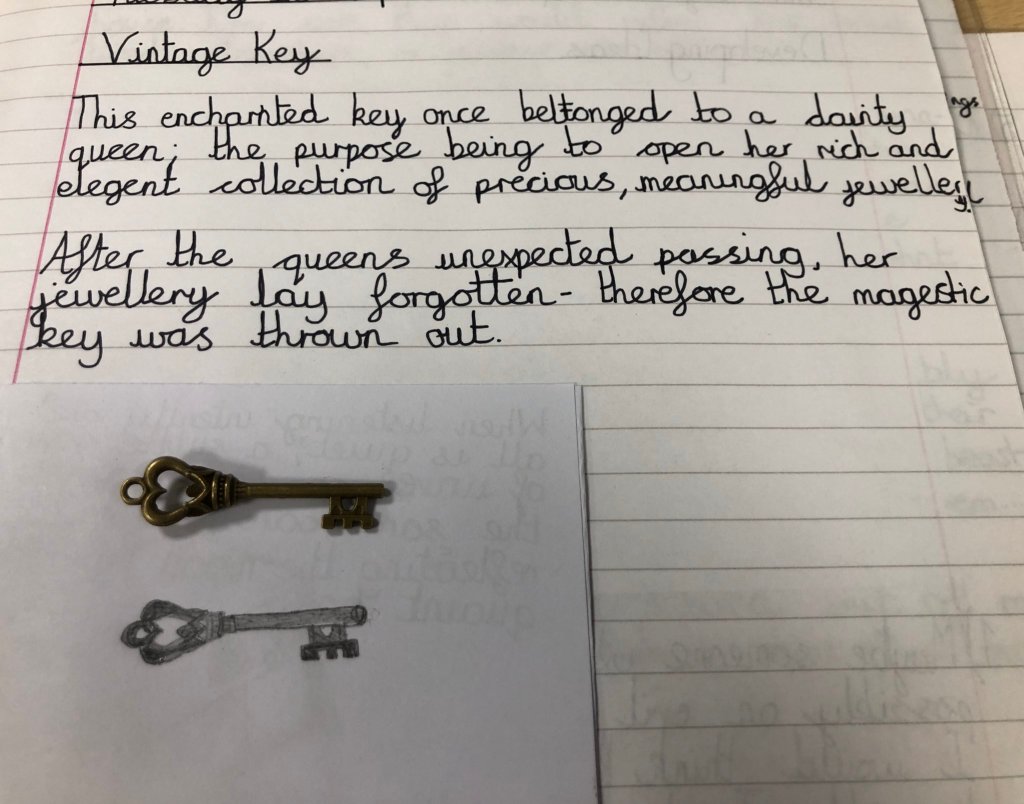 Vintage Key
This enchanted key once beltonged to a dainty
queen; the purpose being to open her rich and
elegent collection of precious, meaningful jewellery.
After the queens unexpected passing, her
jewellery lay forgotten - therefore the magestic
key was thrown out.